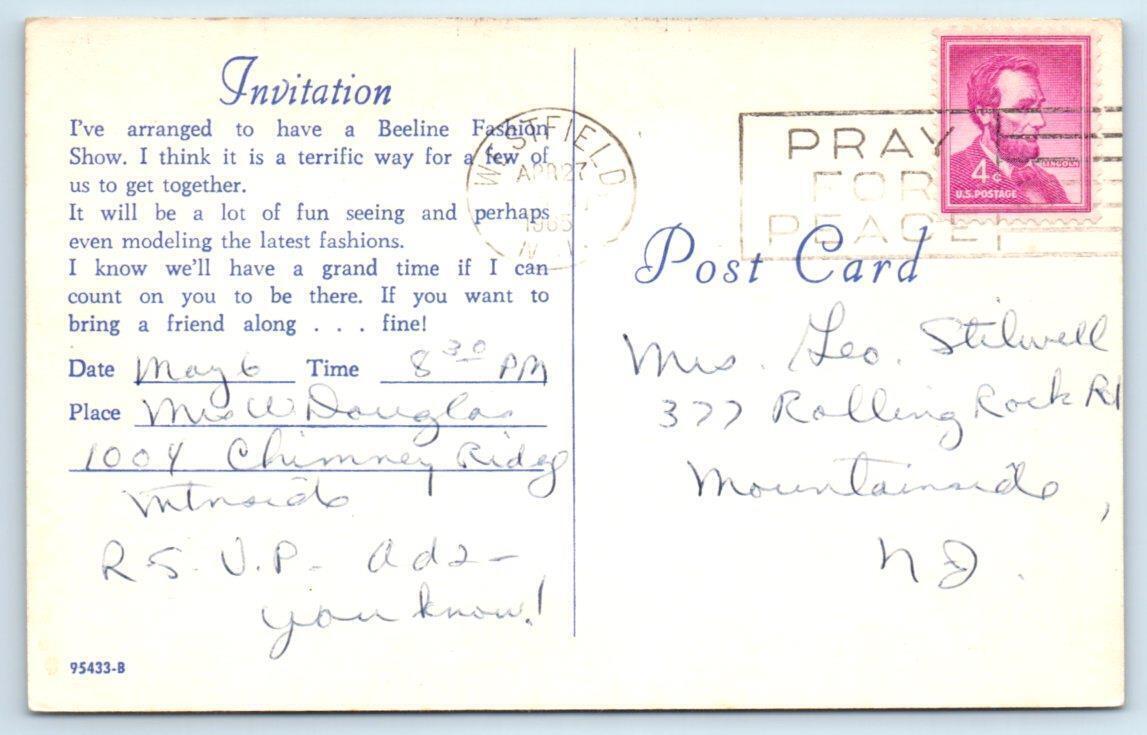 Invitation
I've arranged to have a Beeline Fashion
Show. I think it is a terrific way for a few of
us to get together.
It will be a lot of fun seeing and perhaps
even modeling the latest fashions.
I know we'll have a grand time if I can
count on you to be there. If you want to
bring a friend along . . . fine!
Date May 6 Time 8 30 PM
Place Mrs W. Douglas
1004 Chimney Ridge
Mtnside
R.S.V.P. -
you know!
95433-B
WESTFIELD
APR 27
1965
N.J.
PRAY
FOR
PEACE
LINCOLN
4c
U.S. POSTAGE
Post Card
Mrs. Geo. Stilwell
377 Rolling Rock Rd
Mountainside,
NJ.